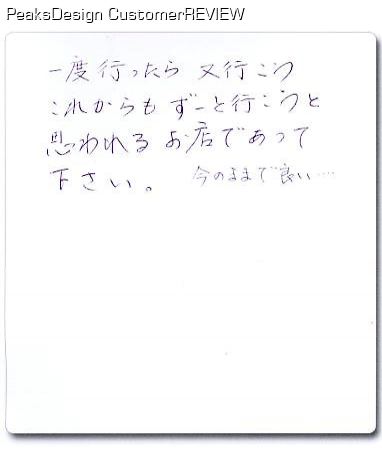 PeaksDesign CustomerREVIEW
一度行ったら 又行こう
これからも ずーと行こうと
思われる お店であって
下さい。 今のままで良い…